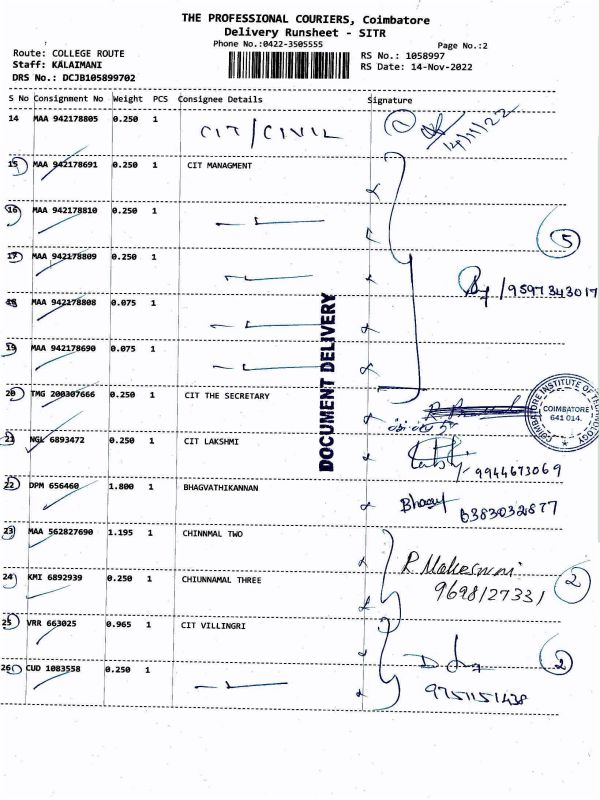 THE PROFESSIONAL COURIERS, Coimbatore
Delivery Runsheet - SITR
Phone No.:0422-3505555
Page No.:2
Route: COLLEGE ROUTE
RS No.: 1058997
Staff: KALAIMANI
RS Date: 14-Nov-2022
DRS No.: DCJB105899702
S No Consignment No Weight PCS Consignee Details Signature
14 MAA 942178805 0.250 1 CIT/CIVIL 14/11/22
15 MAA 942178691 0.250 1 CIT MANAGMENT
16 MAA 942178810 0.250 1
5
17 MAA 942178809 0.250 1
/9597343017
18 MAA 942178808 0.075 1
19 MAA 942178690 0.075 1
DOCUMENT DELIVERY
20 TMG 200307666 0.250 1 CIT THE SECRETARY
COIMBATORE INSTITUTE OF TECHNOLOGY
COIMBATORE
641 014.
21 NGL 6893472 0.250 1 CIT LAKSHMI
9944673069
22 DPM 656460 1.800 1 BHAGVATHIKANNAN
23 MAA 562827690 1.195 1 CHINNMAL TWO
R Maheswari
24 KMI 6892939 0.250 1 CHIUNNAMAL THREE
9698127331
2
25 VRR 663025 0.965 1 CIT VILLINGRI
26 CUD 1083558 0.250 1
2
9751151438